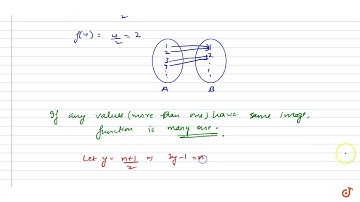 2
f(4) = 4/2 = 2
1 1
2 2
3
4
A B
If any values (more than one) have same image.
function is many one.
Let y = n+1/2 ⇒ 2y-1 = n